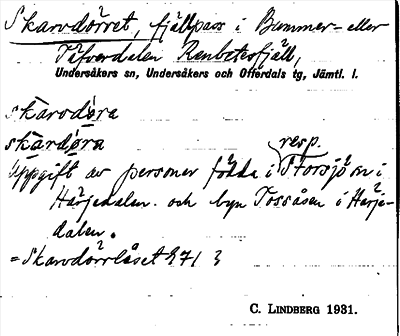 Skarvdörret, fjällpass i Bummer- eller
Täfverdalen Renbetesfjäll,
Undersåkers sn, Undersåkers och Offerdals tg, Jämtl. l.
skarvdöra
skärdöra
resp.
Uppgift av personer födda i Storsjö sn i
Härjedalen och byn Tossåsen i Härje-
dalen.
= Skarvdörrlåset 971
C. LINDBERG 1931.